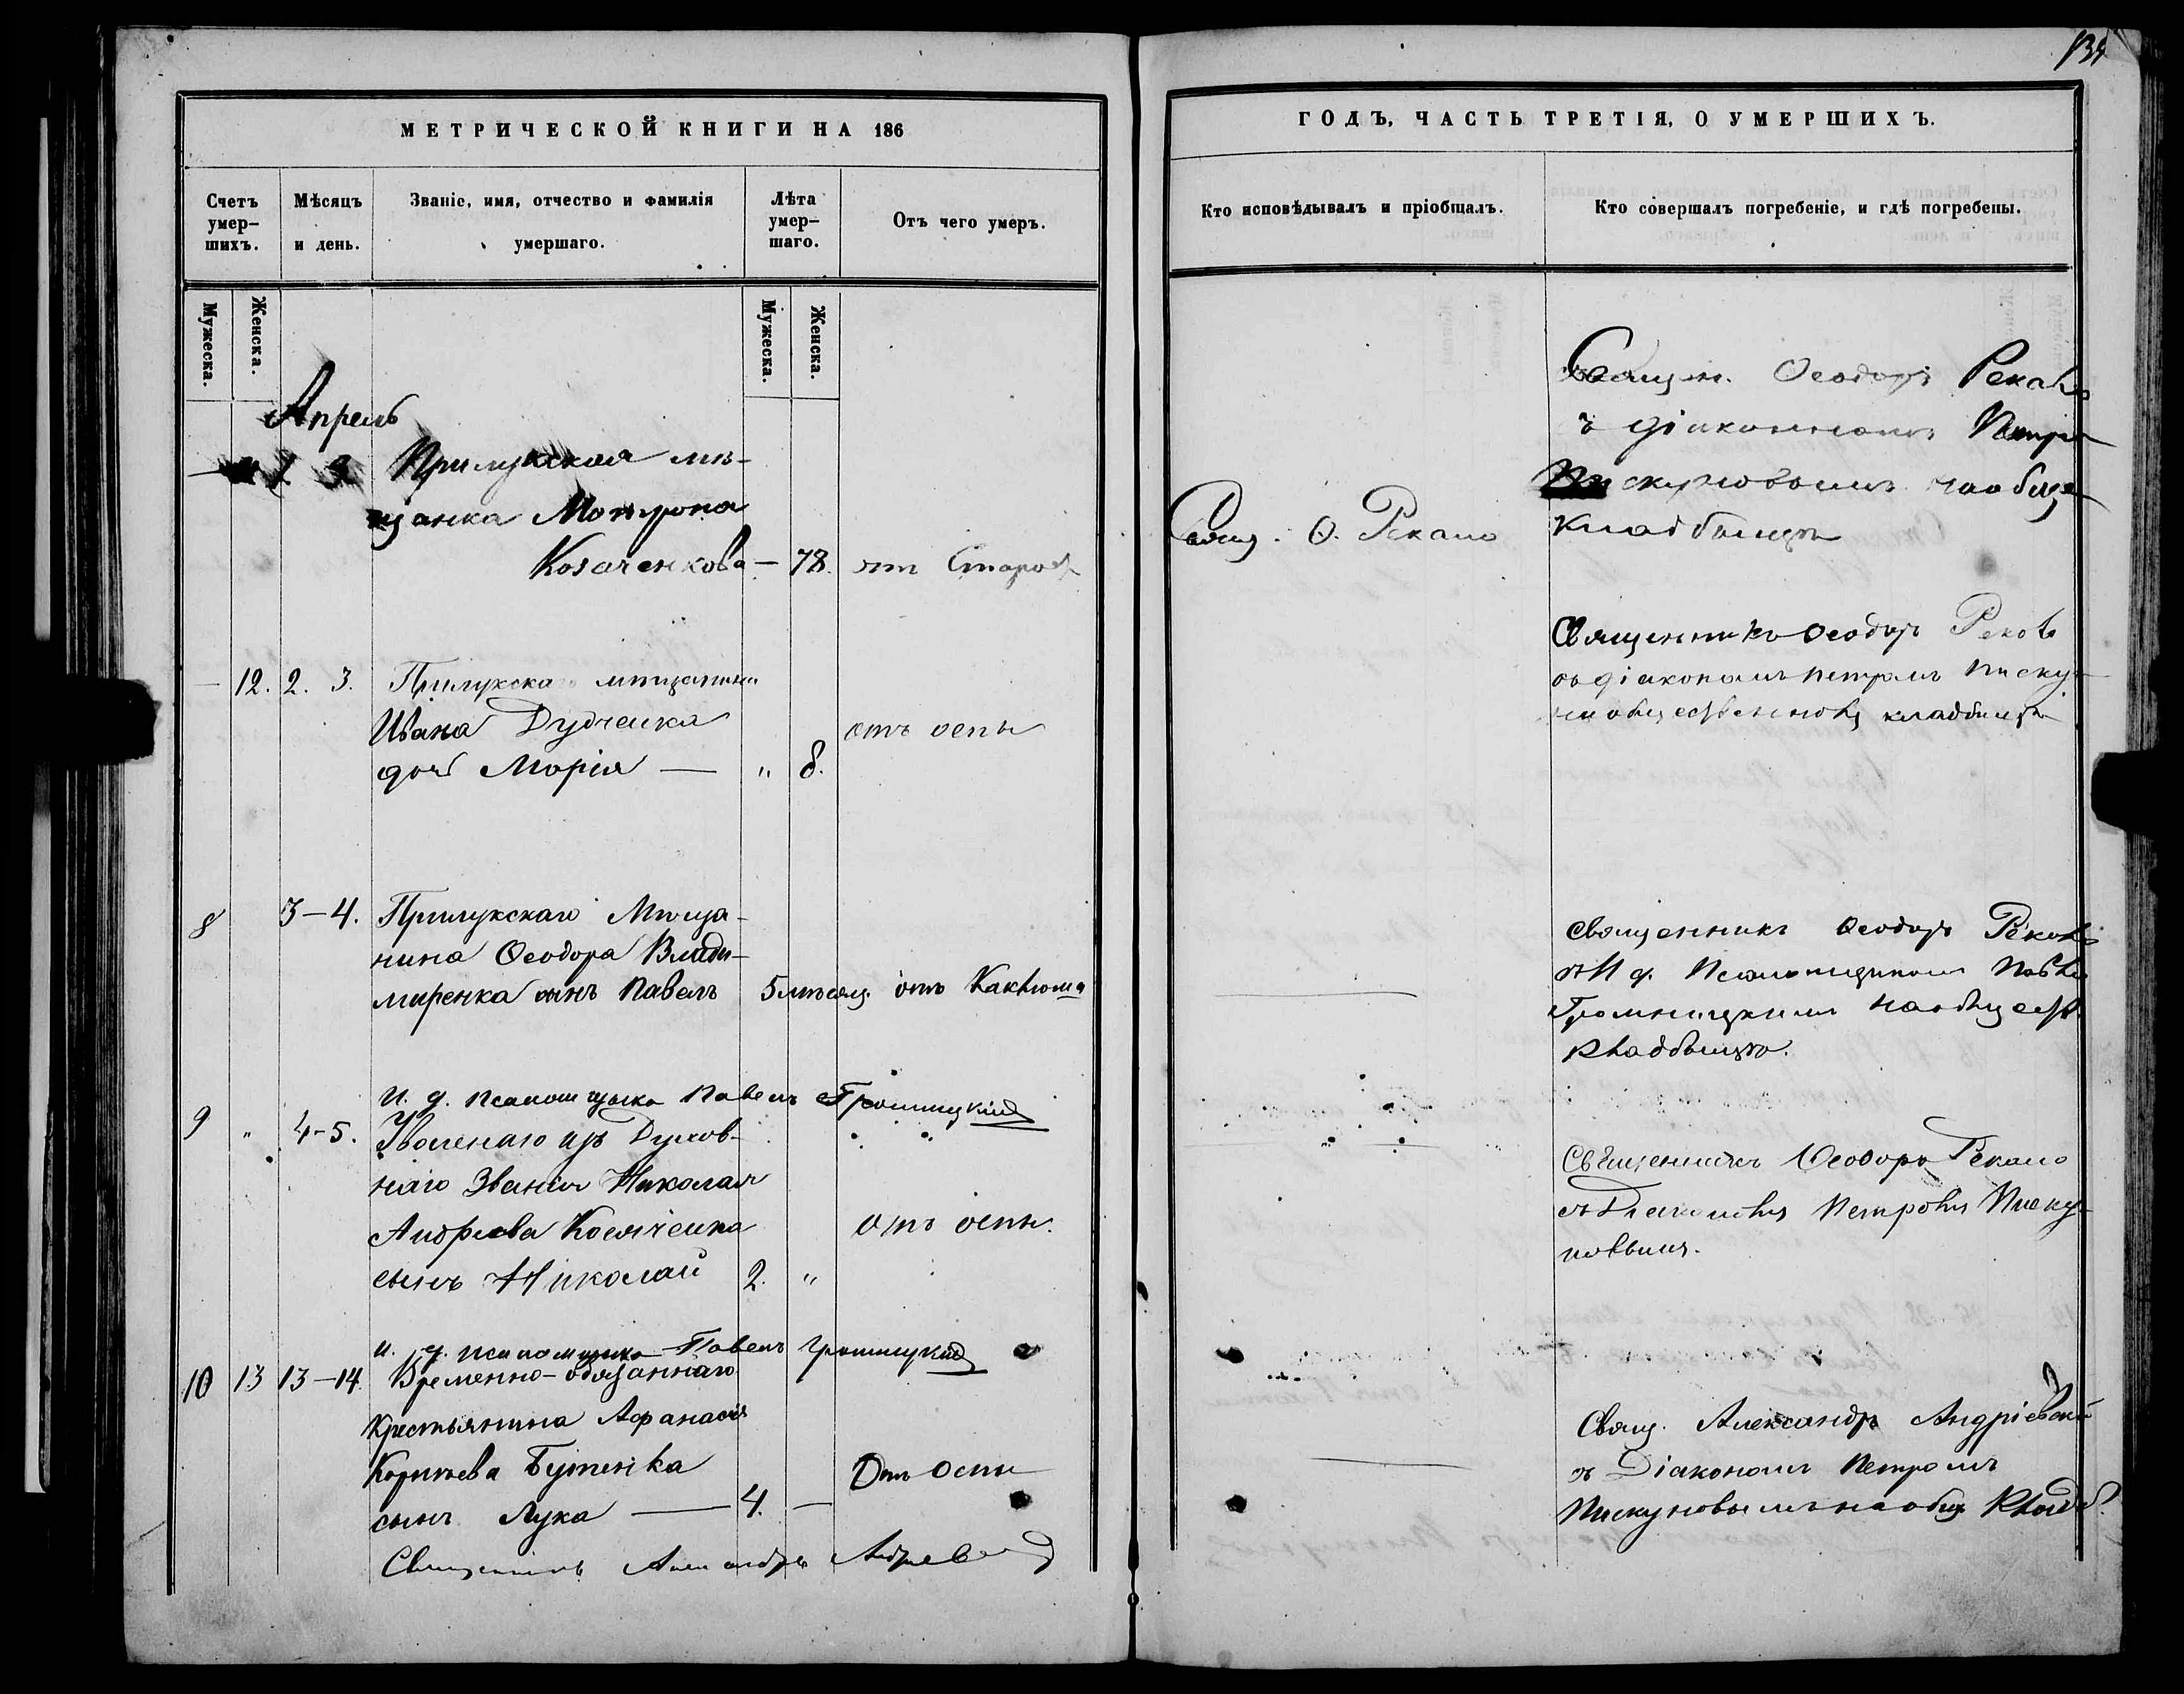 134
МЕТРИЧЕСКОЙ КНИГИ НА 186
Счетъ умер-шихъ.
Мѣсяцъ и день.
Званіе, имя, отчество и фамилія умершаго.
Лѣта умер-шаго.
Отъ чего умеръ.
Мужеска.
Женска.
Мужеска.
Женска.
Апрель
Прилукская мѣ-
щанка Мотрона
Козаченкова — 78. отъ Старос
— 12. 2. 3. Прилукскаго мѣщанина
Ивана Дудченка
отъ оспы
дочь Марія — " 8.
8 3—4. Прилукскаго Мѣща-
нина Ѳеодора Влади-
миренка сынъ Павелъ 5 мѣсяц. отъ Коклюша
И. д. Псаломщика Павелъ Громницкій
9 " 4-5. Уволенаго изъ Духов-
наго Званія Николая
Андреева Косяченка отъ оспы.
сынъ Николай 2. "
И. д. Псаломщика Павелъ Громницкій
10 13 13—14. Временно-обязаннаго
Крестьянина Афанасія
Корнѣева Бутенка Отъ Оспы
сынъ Лука — 4. —
Священникъ Александръ Андріевскій
ГОДЪ, ЧАСТЬ ТРЕТІЯ, О УМЕРШИХЪ.
Кто исповѣдывалъ и пріобщалъ.
Кто совершалъ погребеніе, и гдѣ погребены.
Священ. Ѳеодоръ Рекало
съ діакономъ Петро
Пискуновымъ на общ
Свящ. Ѳ. Рекало
кладбищѣ
Священникъ Ѳеодоръ Рекало
съ діакономъ Петромъ Писку
на общественномъ кладбищѣ
Священникъ Ѳеодоръ Рекало
съ И д. Псаломщикомъ Павл
Громницкимъ на общест.
кладбищѣ.
Священникъ Ѳеодоръ Рекало
съ Діакономъ Петромъ Писку-
новымъ.
Свящ. Александръ Андріевскій
съ Діакономъ Петромъ
Пискуновымъ на общ. кладб.